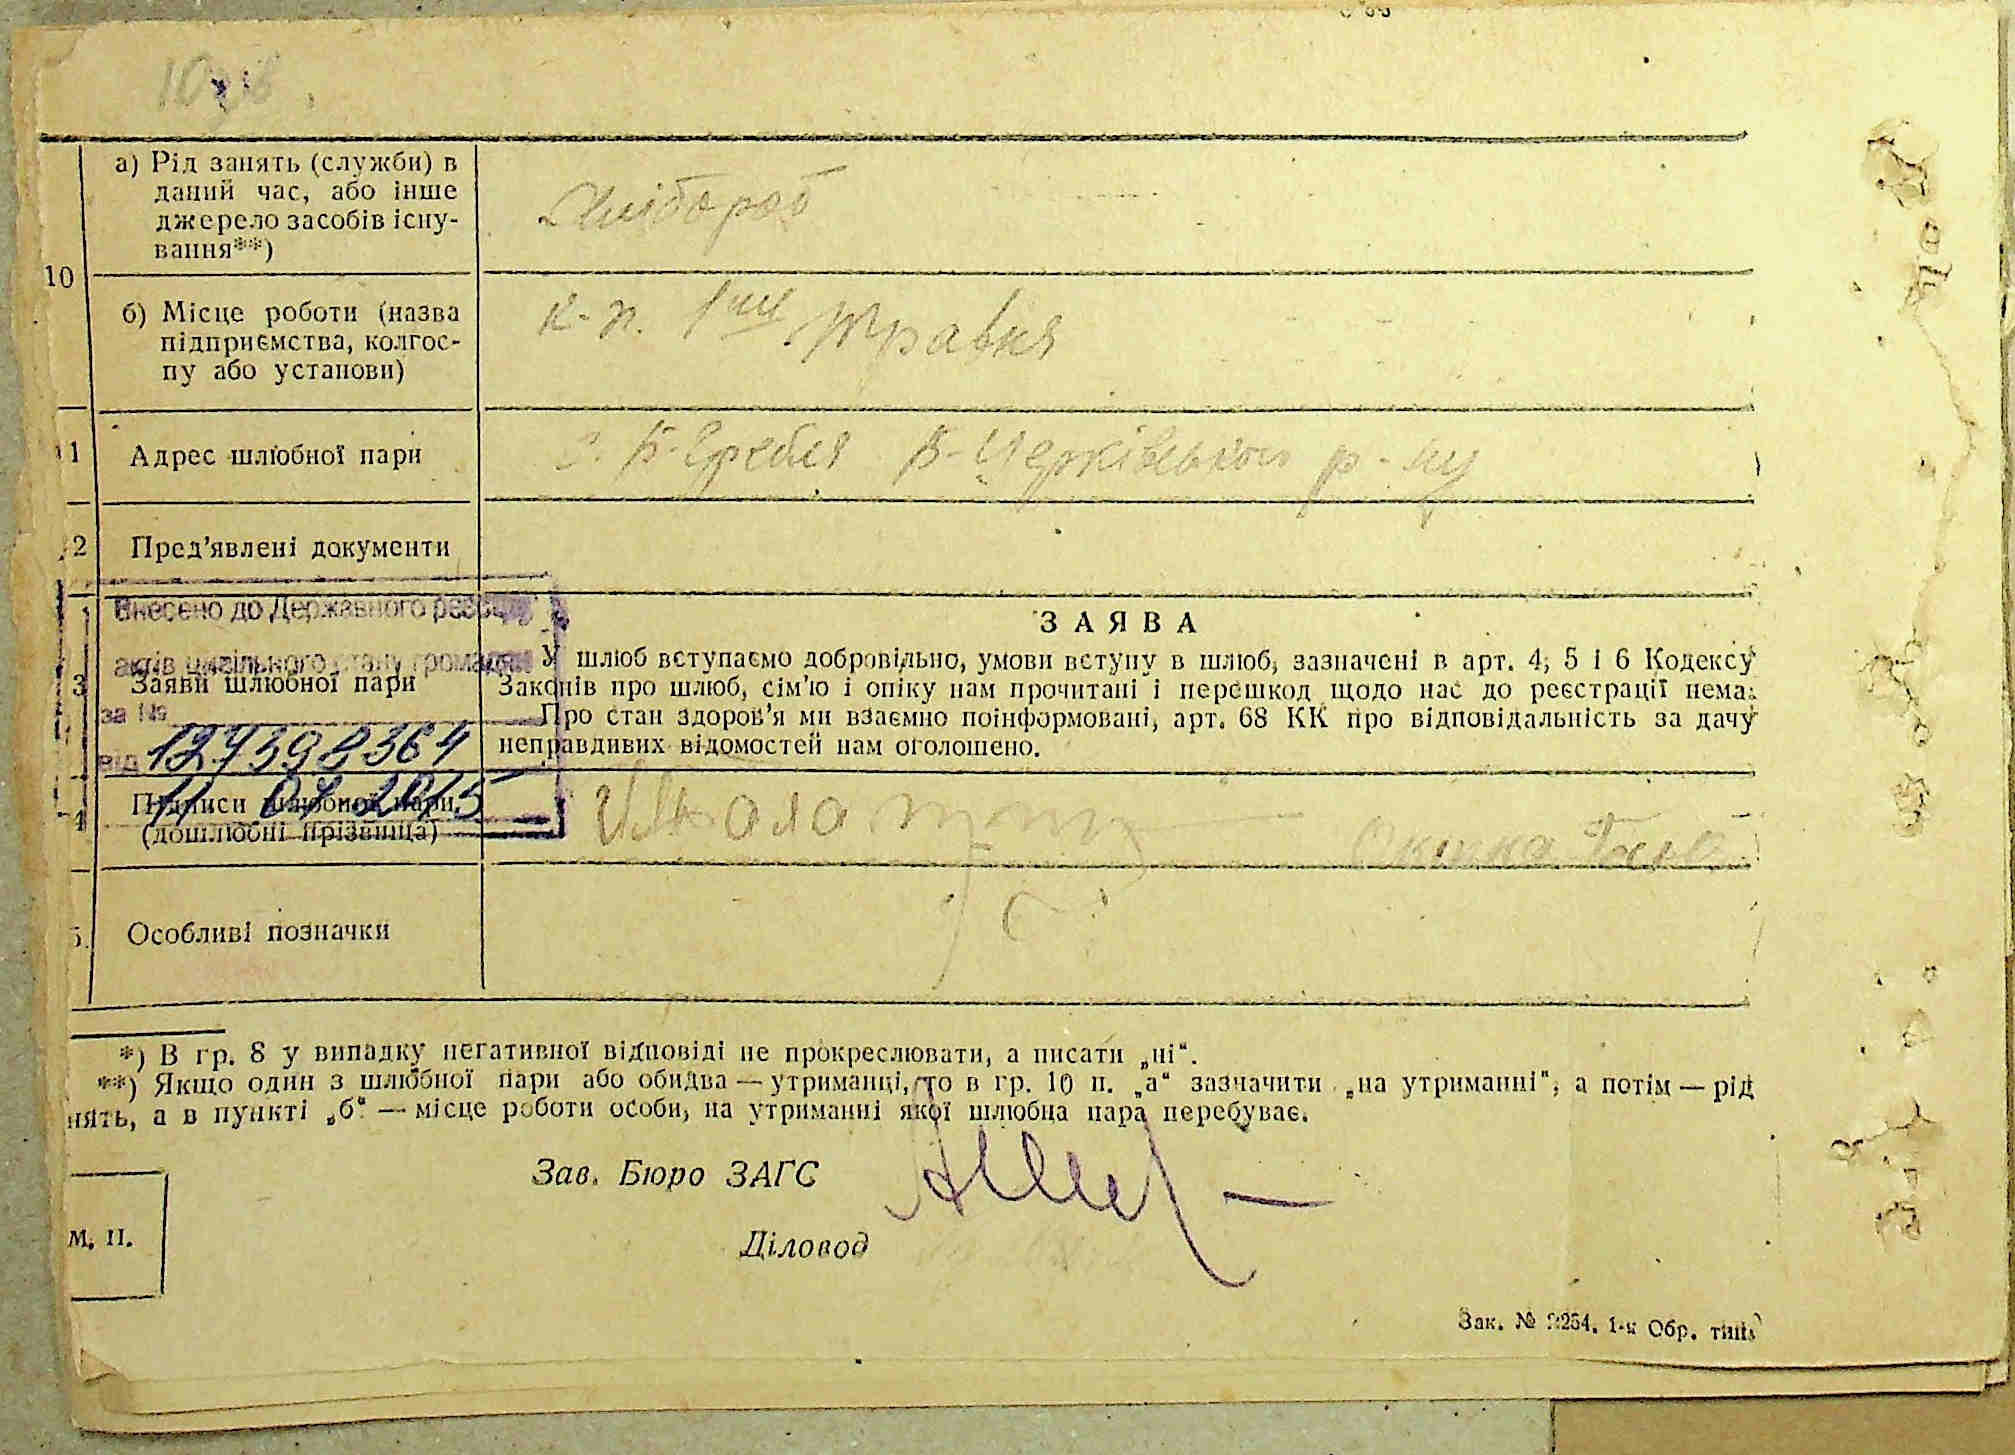 а) Рід занять (служби) в
даний час, або інше
джерело засобів існу-
вання**)
Хлібороб
10
б) Місце роботи (назва
підприємства, колгос-
пу або установи)
к-п. 1ше Травня
11
Адрес шлюбної пари
с. Б-Гребля Б-Церківського р-ну
2
Пред'явлені документи
Внесено до Державного реєстру
актів цивільного стану громадян
за №
127398364
від
11 07 2015
3
Заяви шлюбної пари
ЗАЯВА
У шлюб вступаємо добровільно, умови вступу в шлюб, зазначені в арт. 4, 5 і 6 Кодексу
Законів про шлюб, сім'ю і опіку нам прочитані і перешкод щодо нас до реєстрації нема.
Про стан здоров'я ми взаємно поінформовані, арт. 68 КК про відповідальність за дачу
неправдивих відомостей нам оголошено.
4
Підписи шлюбної пари
(дошлюбні прізвища)
5.
Особливі позначки
*) В гр. 8 у випадку негативної відповіді не прокреслювати, а писати „ні“.
**) Якщо один з шлюбної пари або обидва — утриманці, то в гр. 10 п. „а“ зазначити „на утриманні“, а потім — рід
нять, а в пункті „б“ — місце роботи особи, на утриманні якої шлюбна пара перебуває.
Зав. Бюро ЗАГС
Діловод
М. П.
Зак. № 254. 1-а Обр. тип